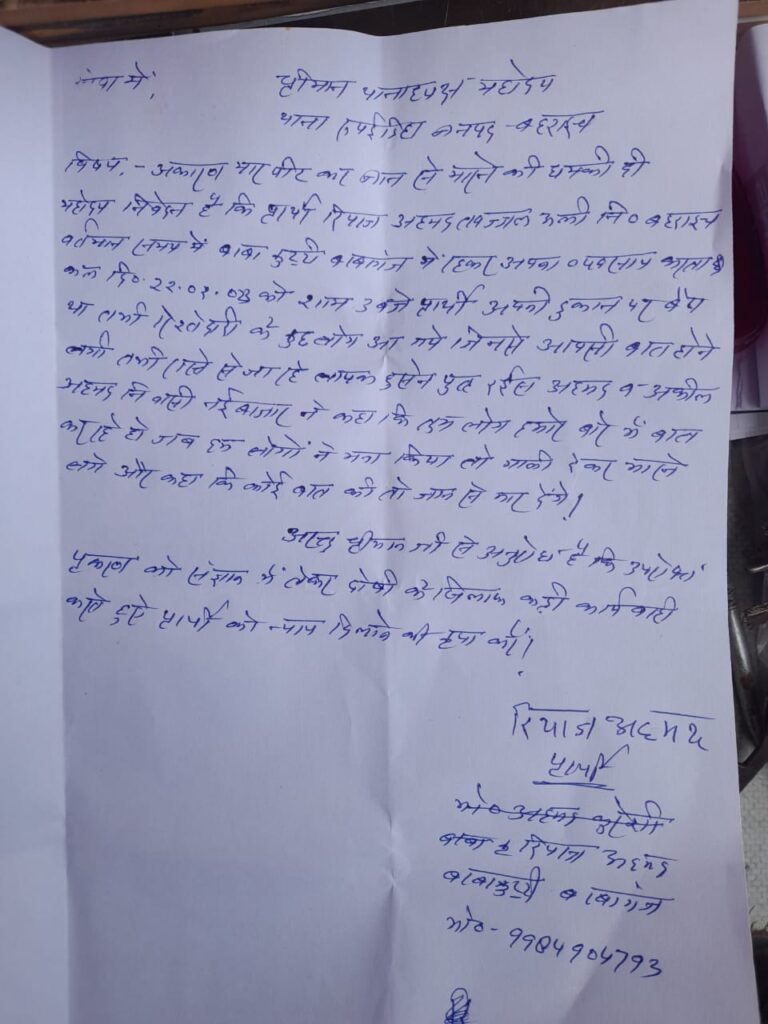 सेवा में,
श्रीमान थानाध्यक्ष महोदय
थाना रुपईडिहा जनपद - बहराइच
विषय. - अकारण मार पीट कर जान से मारने की धमकी दी
महोदय निवेदन है कि प्रार्थी रियाज अहमद अली नि० बहराइच
वर्तमान समय में बाबा कुट्टी बाबागंज में रहकर अपना व्यवसाय करता है
कल दि० को शाम 3 बजे प्रार्थी अपनी दुकान पर बैठा
था तभी रिश्तेदारी के कुछ लोग आ गये जिनसे आपसी बात होने
लगी तभी रास्ते से जा रहे हुसेन पुत्र रईस अहमद व अकील
अहमद निवासी नईबाजार ने कहा कि तुम लोग हमारे बारे में बात
कर रहे हो जब हम लोगों ने मना किया तो गाली देकर मारने
लगे और कहा कि कोई बात की तो जान से मार देंगे।
अतः श्रीमान जी से अनुरोध है कि उपरोक्त
प्रकरण को संज्ञान में लेकर दोषी के खिलाफ कड़ी कार्यवाही
करते हुऐ प्रार्थी को न्याय दिलाने की कृपा करें।
रियाज अहमद
प्रार्थी
रियाज अहमद
बाबाकुट्टी बाबागंज
मो०- 9984904793